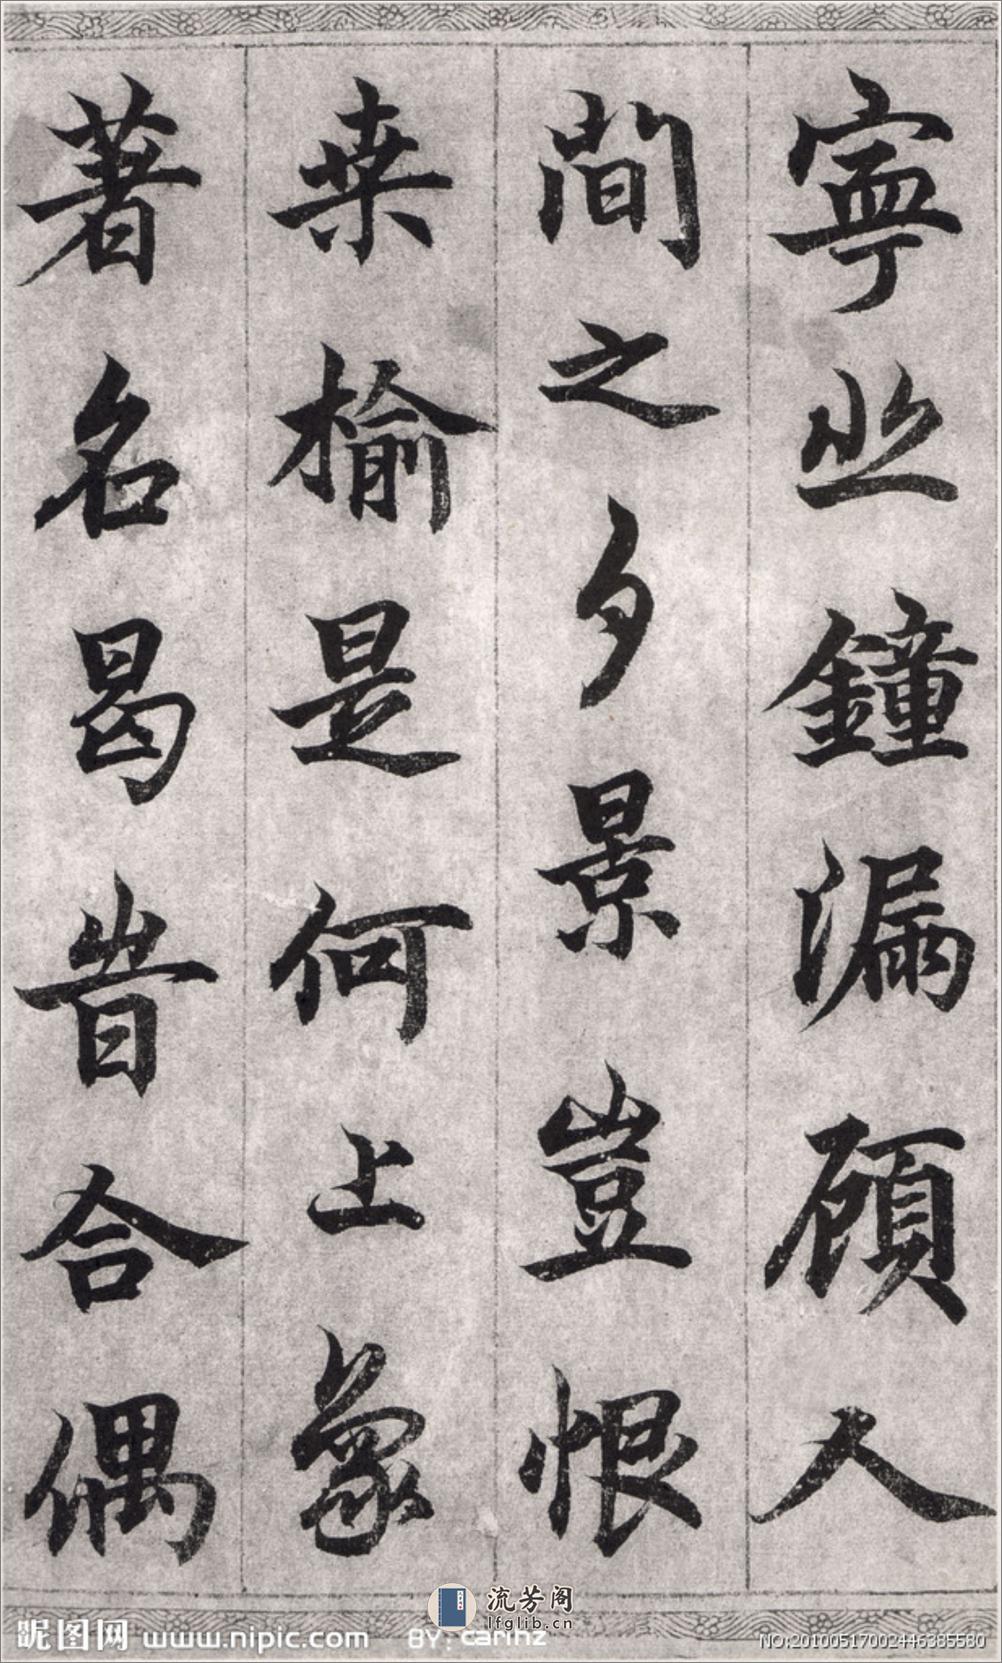 寧止鐘漏顧人
間之夕景豈恨
桒榆是何上象
著名曷昔合偶
流芳阁
lfglib.cn
昵图网 www.nipic.com BY:carinz NO:20100517002446385580